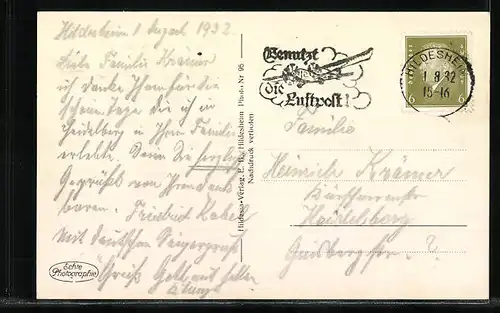 Hildesheim 1 August 1932.
Liebe Familie Krämer
ich danke Ihnen für die
schönen Tage die ich in
Heidelberg in Ihrer Familie
erlebte. Seien Sie herzlich
Gegrüßt von Ihrem dank
baren. Friedrich
Mit deutschen Sängergruß
Grüß Gott mit hellem
Klang
Echte
Photographie
Hildesia-Verlag, Hildesheim Photo Nr 95
Nachdruck verboten
Benutzt
die
Luftpost!
HILDESHEIM
1 8 32
15-16
6 6
Familie
Heinrich Krämer
Heidelberg